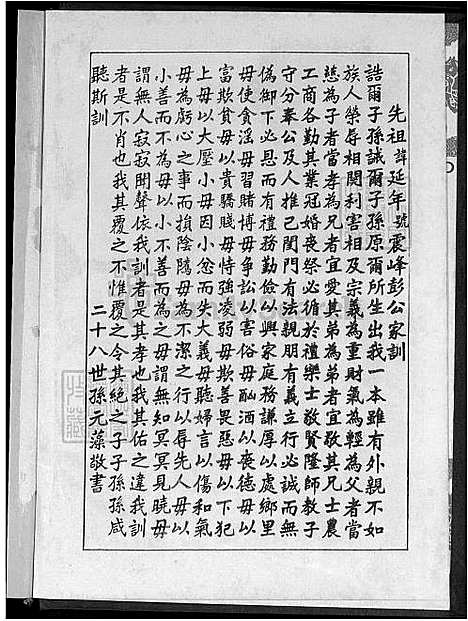 先祖諱延年號震峰彭公家訓
誥爾子孫誡爾子孫原爾所生出我一本雖有外親不如
族人榮辱相関利害相及宗義為重財氣為輕為父者當
慈為子者當孝為兄者宜愛其弟為弟者宜敬其兄士農
工商各勤其業冠婚喪祭必循於禮樂士敬賢隆師教子
守分奉公及人推己閨門有法親朋有義立行必誠而無
偽御下必恩而有禮務勤儉以興家庭務謙厚以處鄉里
毋使貪淫毋習賭博毋爭訟以害俗毋酗酒以喪德毋以
富欺貧毋以貴驕賤毋恃強凌弱毋欺善畏惡毋以下犯
上毋以大壓小毋因小忿而失大義毋聽婦言以傷和氣
毋為虧心之事而損陰騭毋為不潔之行以辱先人毋以
小善而不為毋以小不善而為之毋謂無知冥冥見曉毋
謂無人寂寂聞聲依我訓者是其孝也我其佑之違我訓
者是不肖也我其覆之不惟覆之令其絶之子子孫孫咸
聽斯訓
二十八世孫元藻敬書